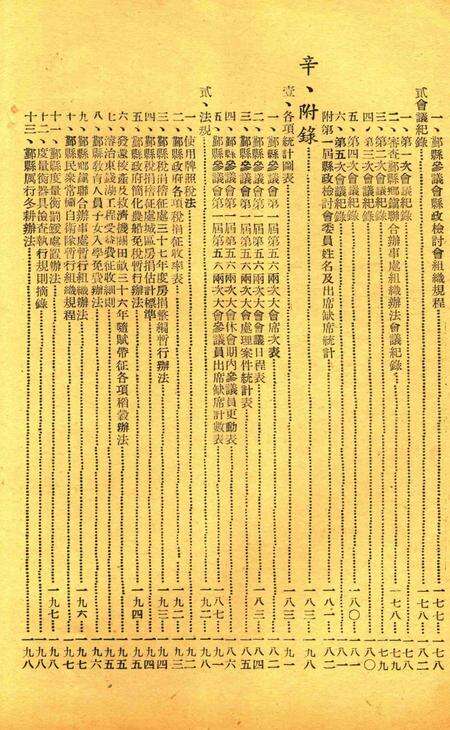 贰會議紀錄……一七八——一八二
一、鄞縣參議會縣政檢討會組織規程……一七七——一七八
二、審查鄞縣鄉鎮聯合辦事處組織辦法會議紀錄……一七八——一七九
第一次會議紀錄
三、第二次會議紀錄……一七九
四、第三次會議紀錄……一八〇
五、第四次會議紀錄……一八〇——一八一
六、第五次會議紀錄……一八一
附第一屆縣政檢討會委員姓名及出席缺席統計……一八一——一八二
辛、附錄……一八三——一九八
壹、各項統計圖表……一八三——一九一
一、鄞縣參議會第一屆第五六兩次大會席次表……一八二
二、鄞縣參議會第一屆第五六兩次大會會議日程表……一八三——一八四
三、鄞縣參議會第一屆第五六兩次大會處理案件統計表……一八五
四、鄞縣參議會第一屆第五六兩次大會休會期內參議員更動表……一八六
五、鄞縣參議會第一屆第五六兩次大會參議員出席缺席計數表……一八七——一九一
贰、法規……一九二——一九八
一、使用牌照稅法……一九二
二、鄞縣縣政府各項稅捐征收率表……一九二——一九三
三、鄞縣稅捐稽征處三十七年度房捐整編暫行辦法……一九三——一九四
四、鄞縣稅捐稽征處城區房捐估計標準……一九四
五、鄞縣縣政府簡化農船免稅暫行辦法……一九四——一九五
六、發還被產及救濟機關田畝三十六年隨賦帶征各項稻穀辦法……一九五
七、濬治東錢湖工程受益費征收細則……一九五
八、鄞縣教育人員子女入學免費辦法……一九六
九、鄞縣鄉鎮聯合辦事處暫行組織辦法……一九六——一九七
十、鄞縣民眾常備自衛隊暫行組織規程……一九七
十一、鄞縣度量衡罰鍰處置辦法……一九七——一九八
十二、度量衡器具檢查執行規則摘錄……一九八
十三、鄞縣厲行冬耕辦法……一九八